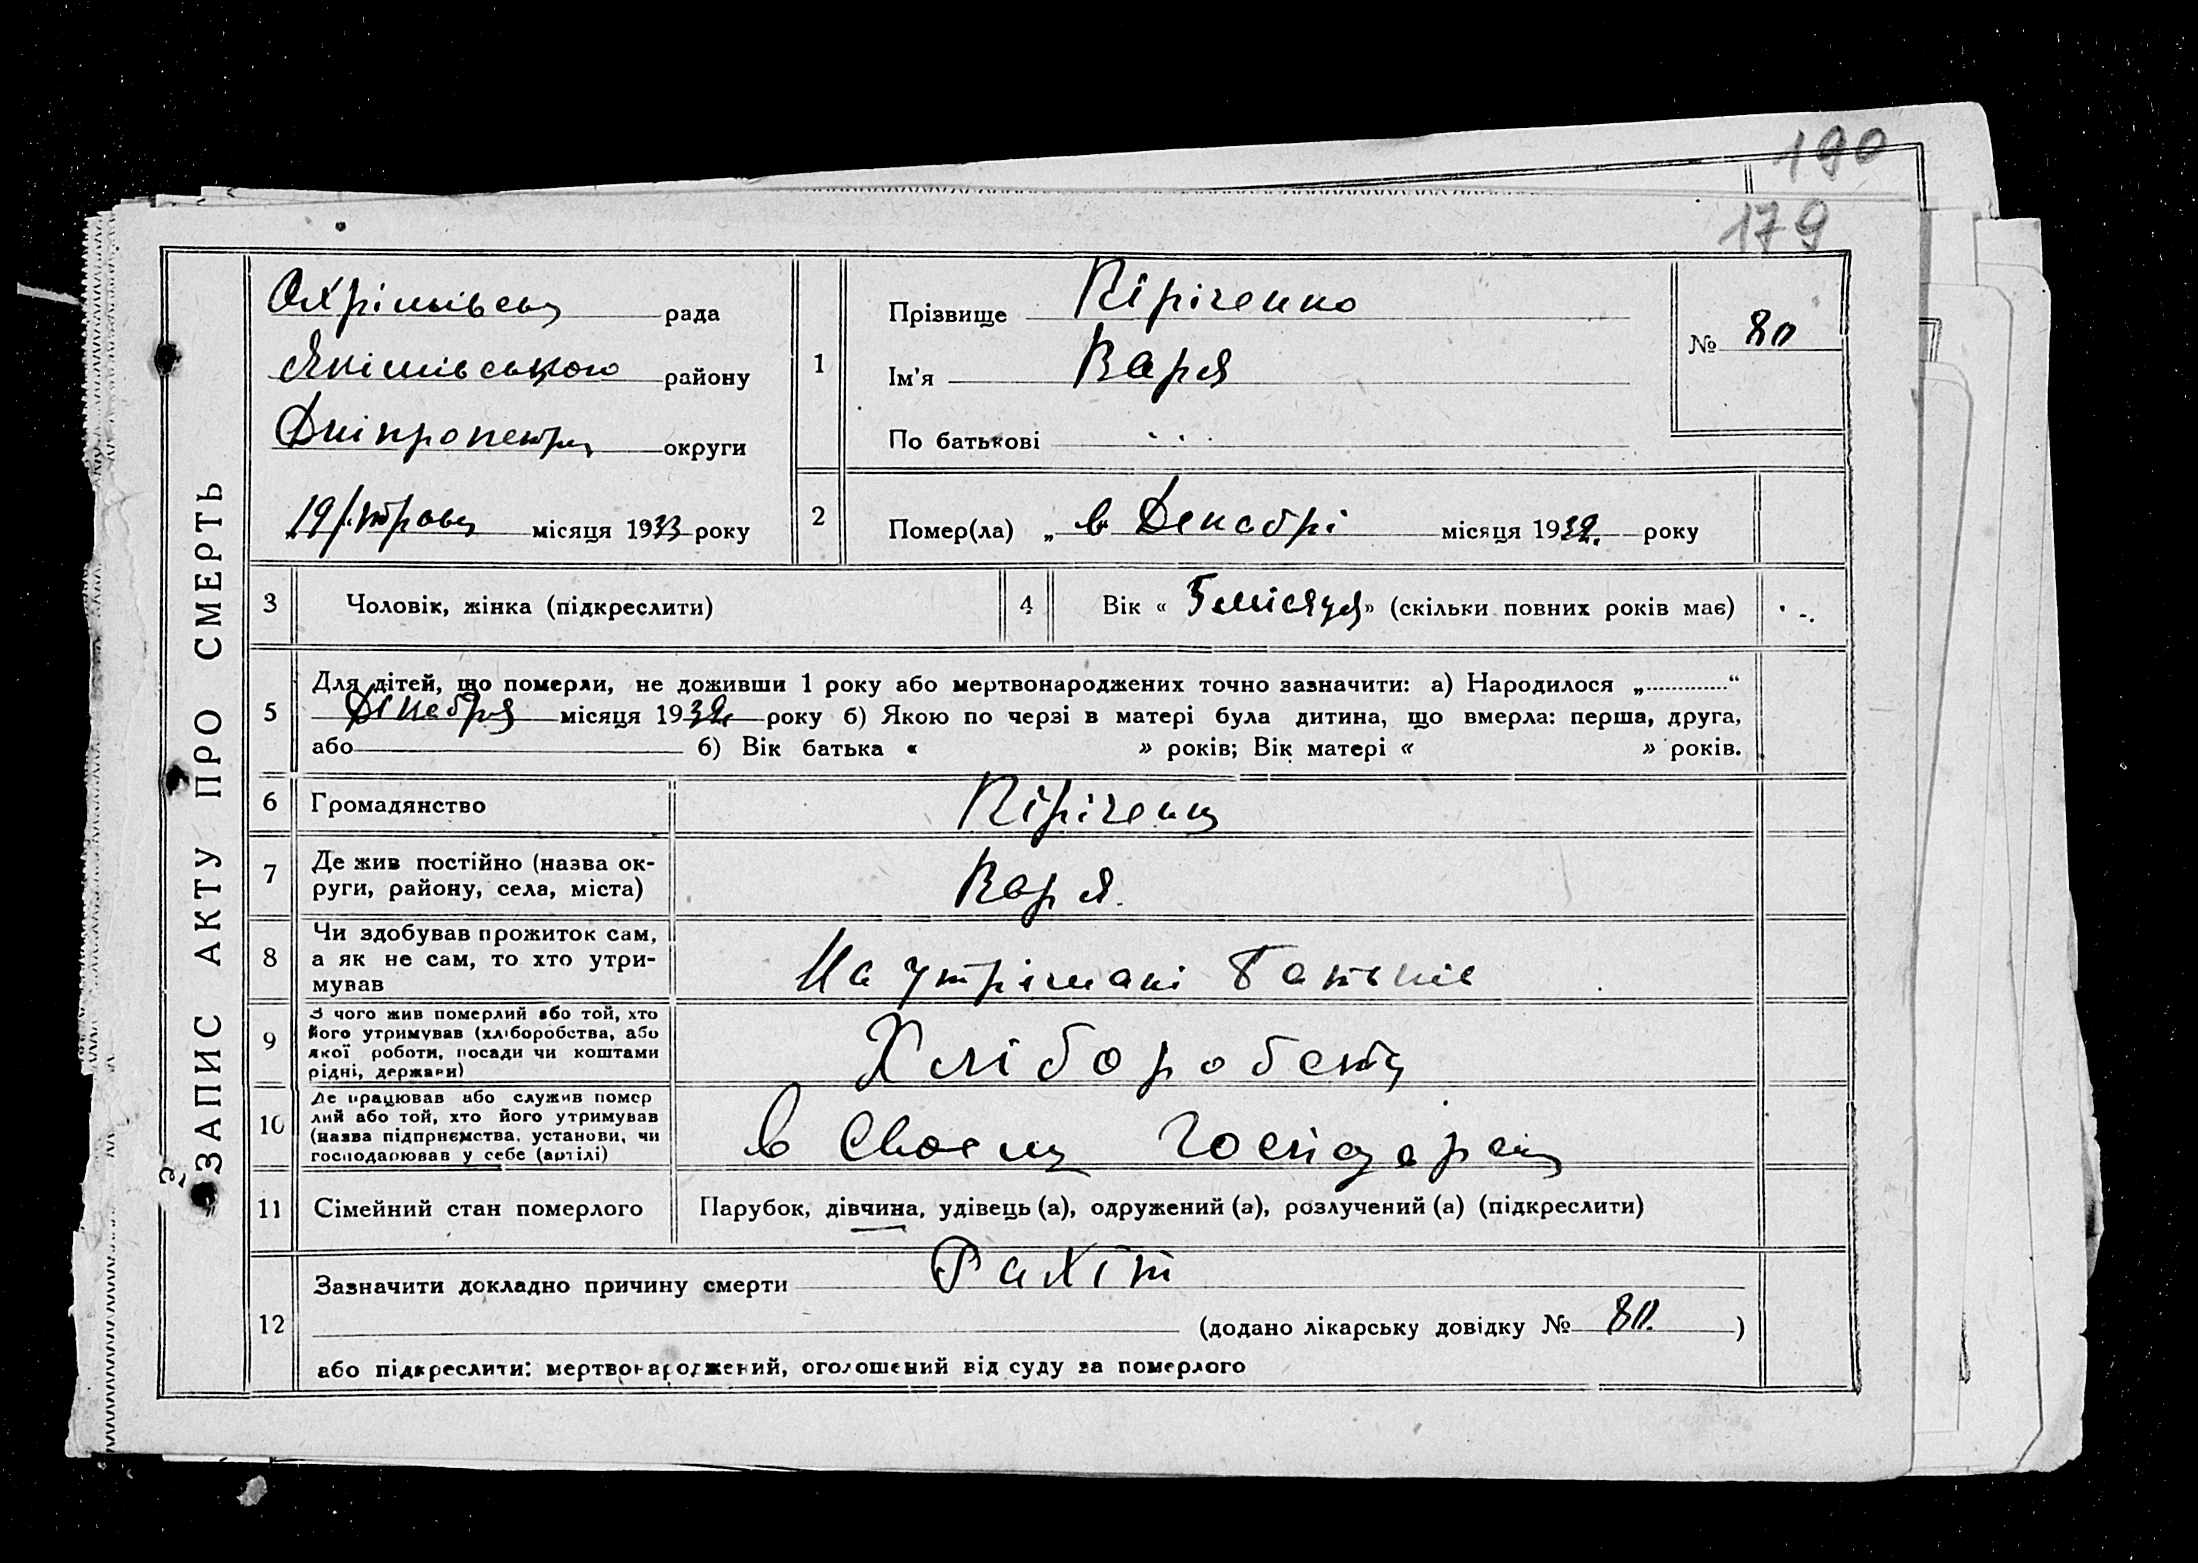 190
179
ЗАПИС АКТУ ПРО СМЕРТЬ
Охрімівськ рада
Якімівського району
Дніпропетр округи
19/травц місяця 1933 року
1
Прізвище Піріченко
Ім'я Варя
По батькові
№ 80
2
Помер(ла) „ в Декабрі місяця 1932. року
3 Чоловік, жінка (підкреслити)
4 Вік « 5 місяця » (скільки повних років має)
5
Для дітей, що померли, не доживши 1 року або мертвонароджених точно зазначити: а) Народилося „.............“
Дікабря місяця 1932 року б) Якою по черзі в матері була дитина, що вмерла: перша, друга,
або б) Вік батька « » років; Вік матері « » років.
6 Громадянство Піріченко
7 Де жив постійно (назва ок-
руги, району, села, міста) Варя.
8 Чи здобував прожиток сам,
а як не сам, то хто утри-
мував На утрімані батьків
9 З чого жив померлий або той, хто
його утримував (хліборобства, або
якої роботи, посади чи коштами
рідні, держави) Хліборобств
10 Де працював або служив помер
лий або той, хто його утримував
(назва підприємства, установи, чи
господарював у себе (артілі) в своєму господарст
11 Сімейний стан померлого Парубок, дівчина, удівець (а), одружений (а), розлучений (а) (підкреслити)
12
Зазначити докладно причину смерти Рахіт
(додано лікарську довідку № 80. )
або підкреслити: мертвонароджений, оголошений від суду за померлого